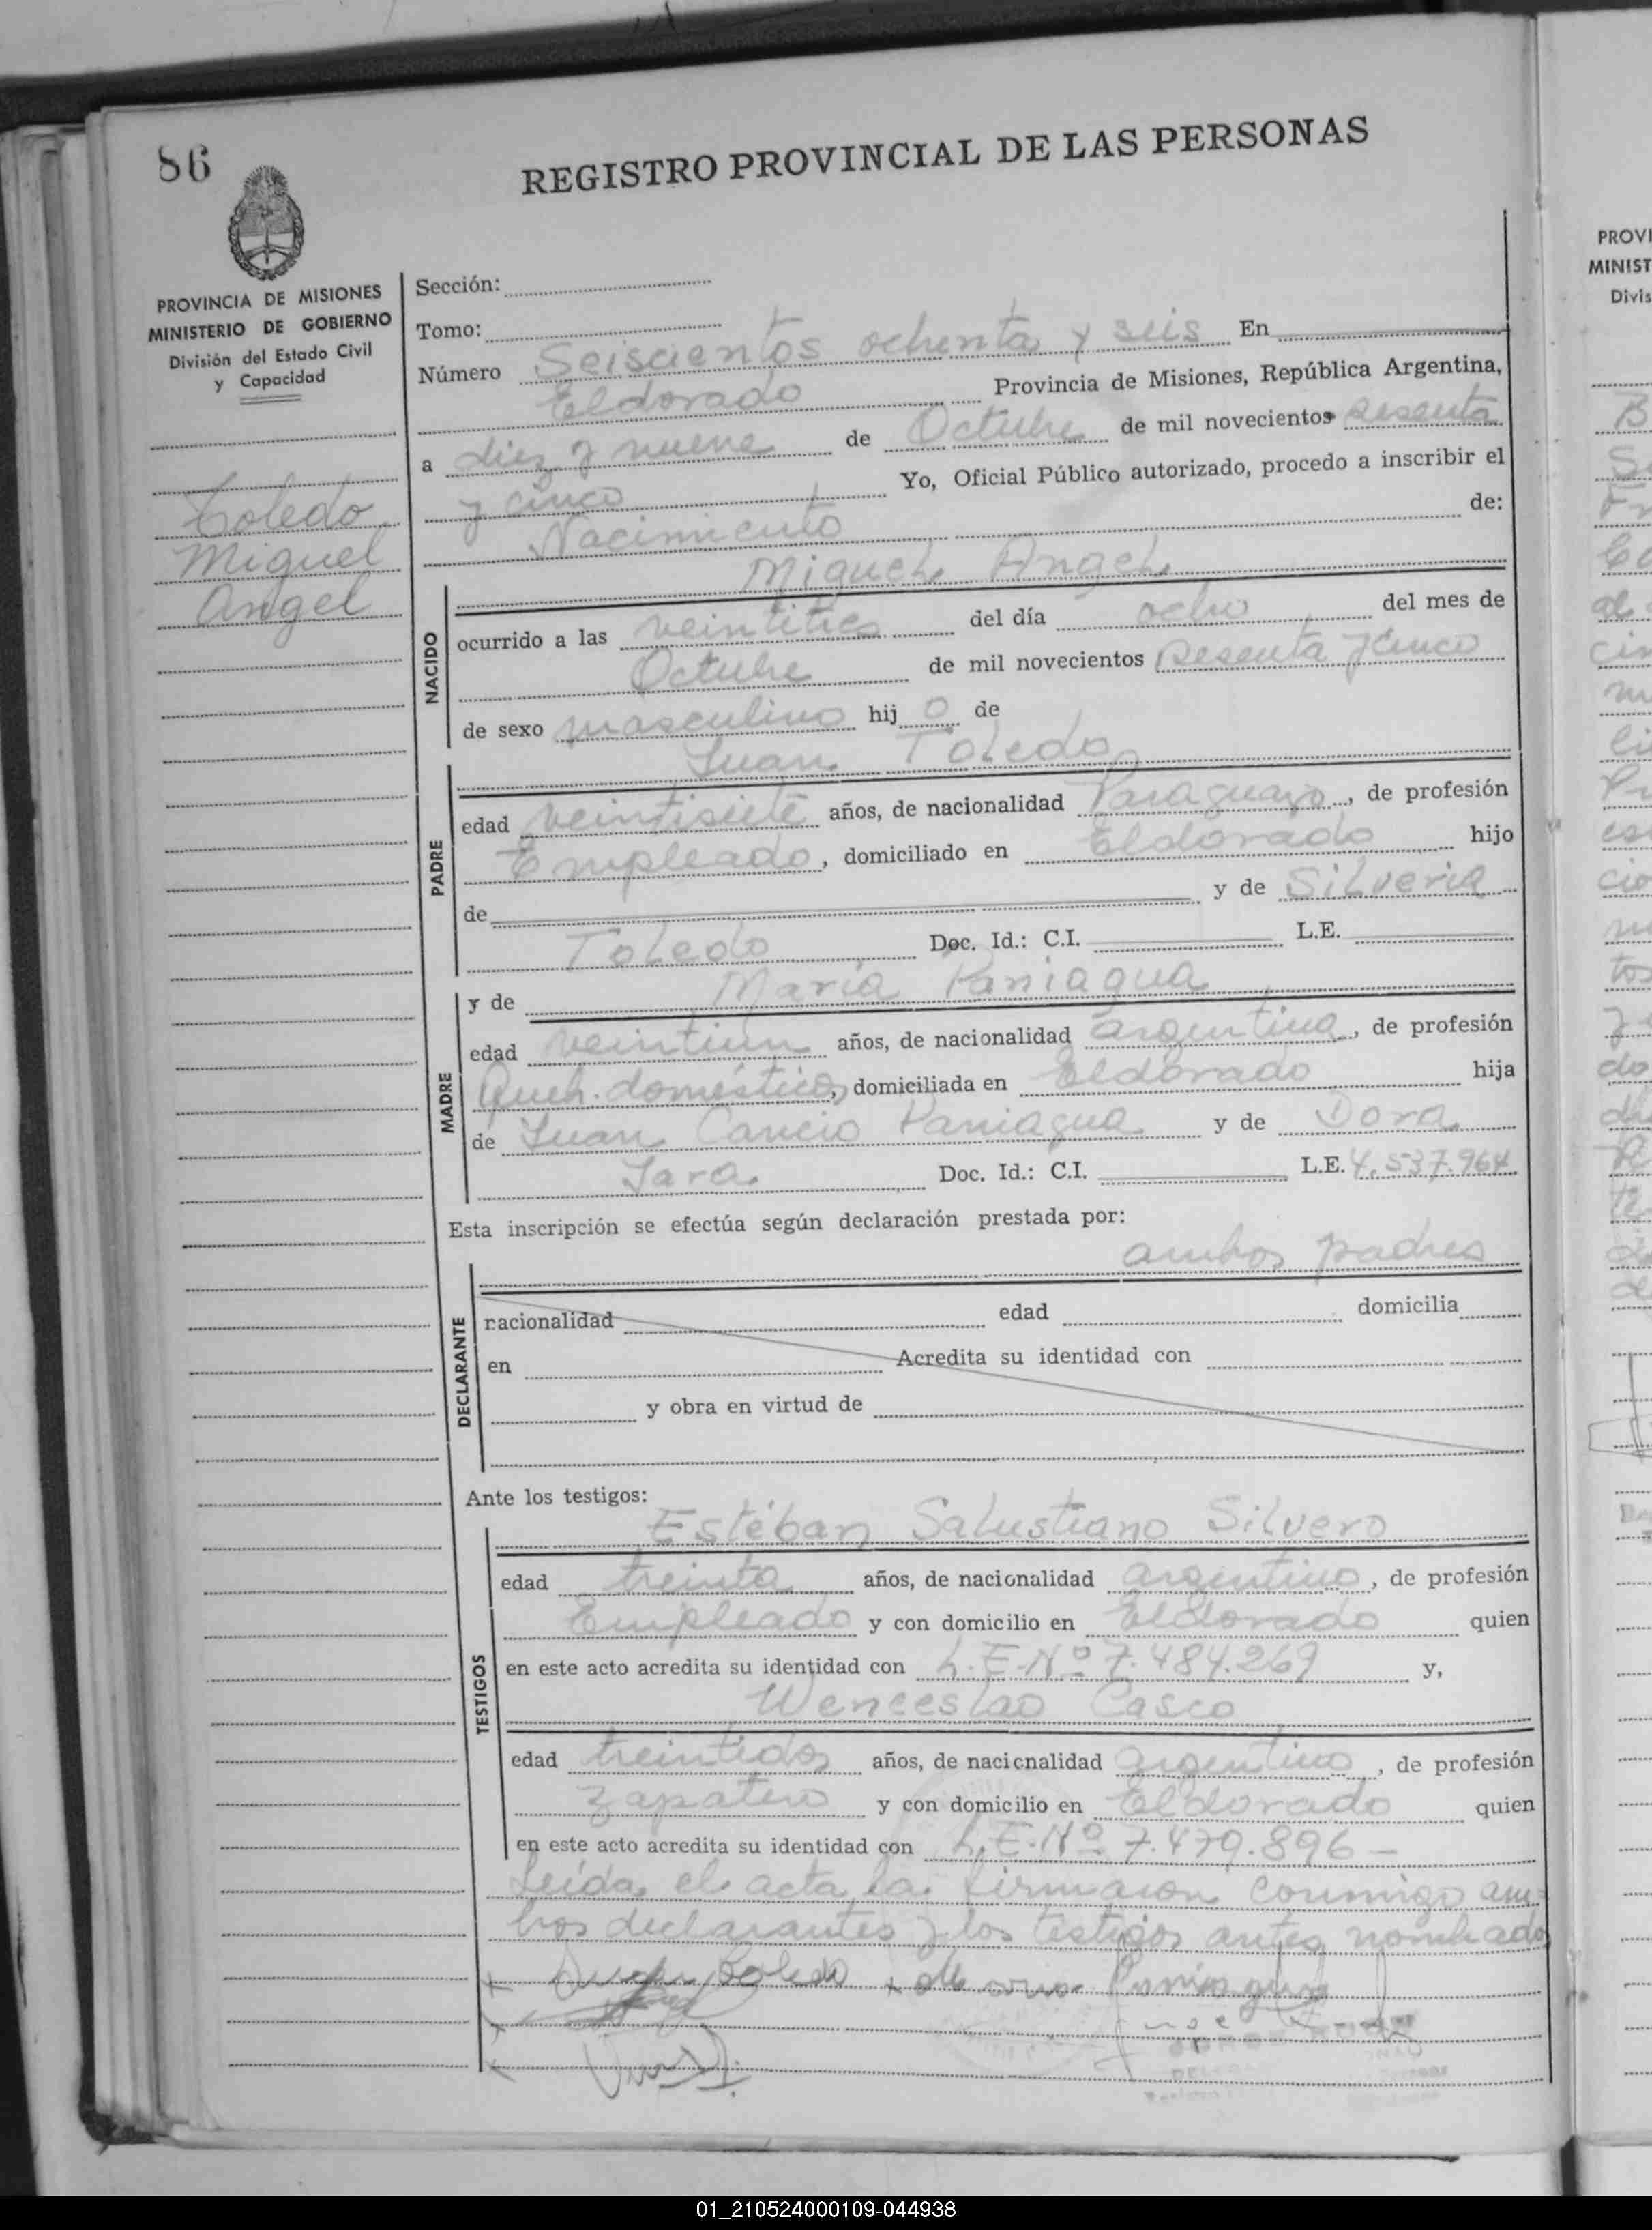 86
REGISTRO PROVINCIAL DE LAS PERSONAS
PROVINCIA DE MISIONES
MINISTERIO DE GOBIERNO
División del Estado Civil
y Capacidad
Toledo
Miguel
Angel
Sección:
Tomo:
Número Seiscientos ochenta y seis En
Eldorado Provincia de Misiones, República Argentina,
a diez y nueve de Octubre de mil novecientos sesenta
y cinco Yo, Oficial Público autorizado, procedo a inscribir el
Nacimiento de:
NACIDO
Miguel Angel
ocurrido a las veintitres del día ocho del mes de
Octubre de mil novecientos sesenta y cinco
de sexo masculino hij o de
PADRE
Juan Toledo
edad veintisiete años, de nacionalidad Paraguayo, de profesión
Empleado, domiciliado en Eldorado hijo
de y de Silveria
Toledo Doc. Id.: C.I. L.E.
MADRE
y de María Paniagua
edad veintiun años, de nacionalidad argentina, de profesión
Queh. domésticos, domiciliada en Eldorado hija
de Juan Cancio Paniagua y de Dora
Jara Doc. Id.: C.I. L.E. 4.537.964
Esta inscripción se efectúa según declaración prestada por:
ambos padres
DECLARANTE
nacionalidad edad domicilia
en Acredita su identidad con
y obra en virtud de
Ante los testigos:
TESTIGOS
Estéban Salustiano Silvero
edad treinta años, de nacionalidad argentino, de profesión
Empleado y con domicilio en Eldorado quien
en este acto acredita su identidad con L.E.Nº 7.484.269 y,
Wenceslao Casco
edad treintidos años, de nacionalidad argentino, de profesión
zapatero y con domicilio en Eldorado quien
en este acto acredita su identidad con L.E.Nº 7.479.896 -
Leída el acta la firmaron conmigo am-
bos declarantes y los testigos antes nombrado
Toledo Paniagua
PROVI
MINIST
Divis
01_210524000109-044938